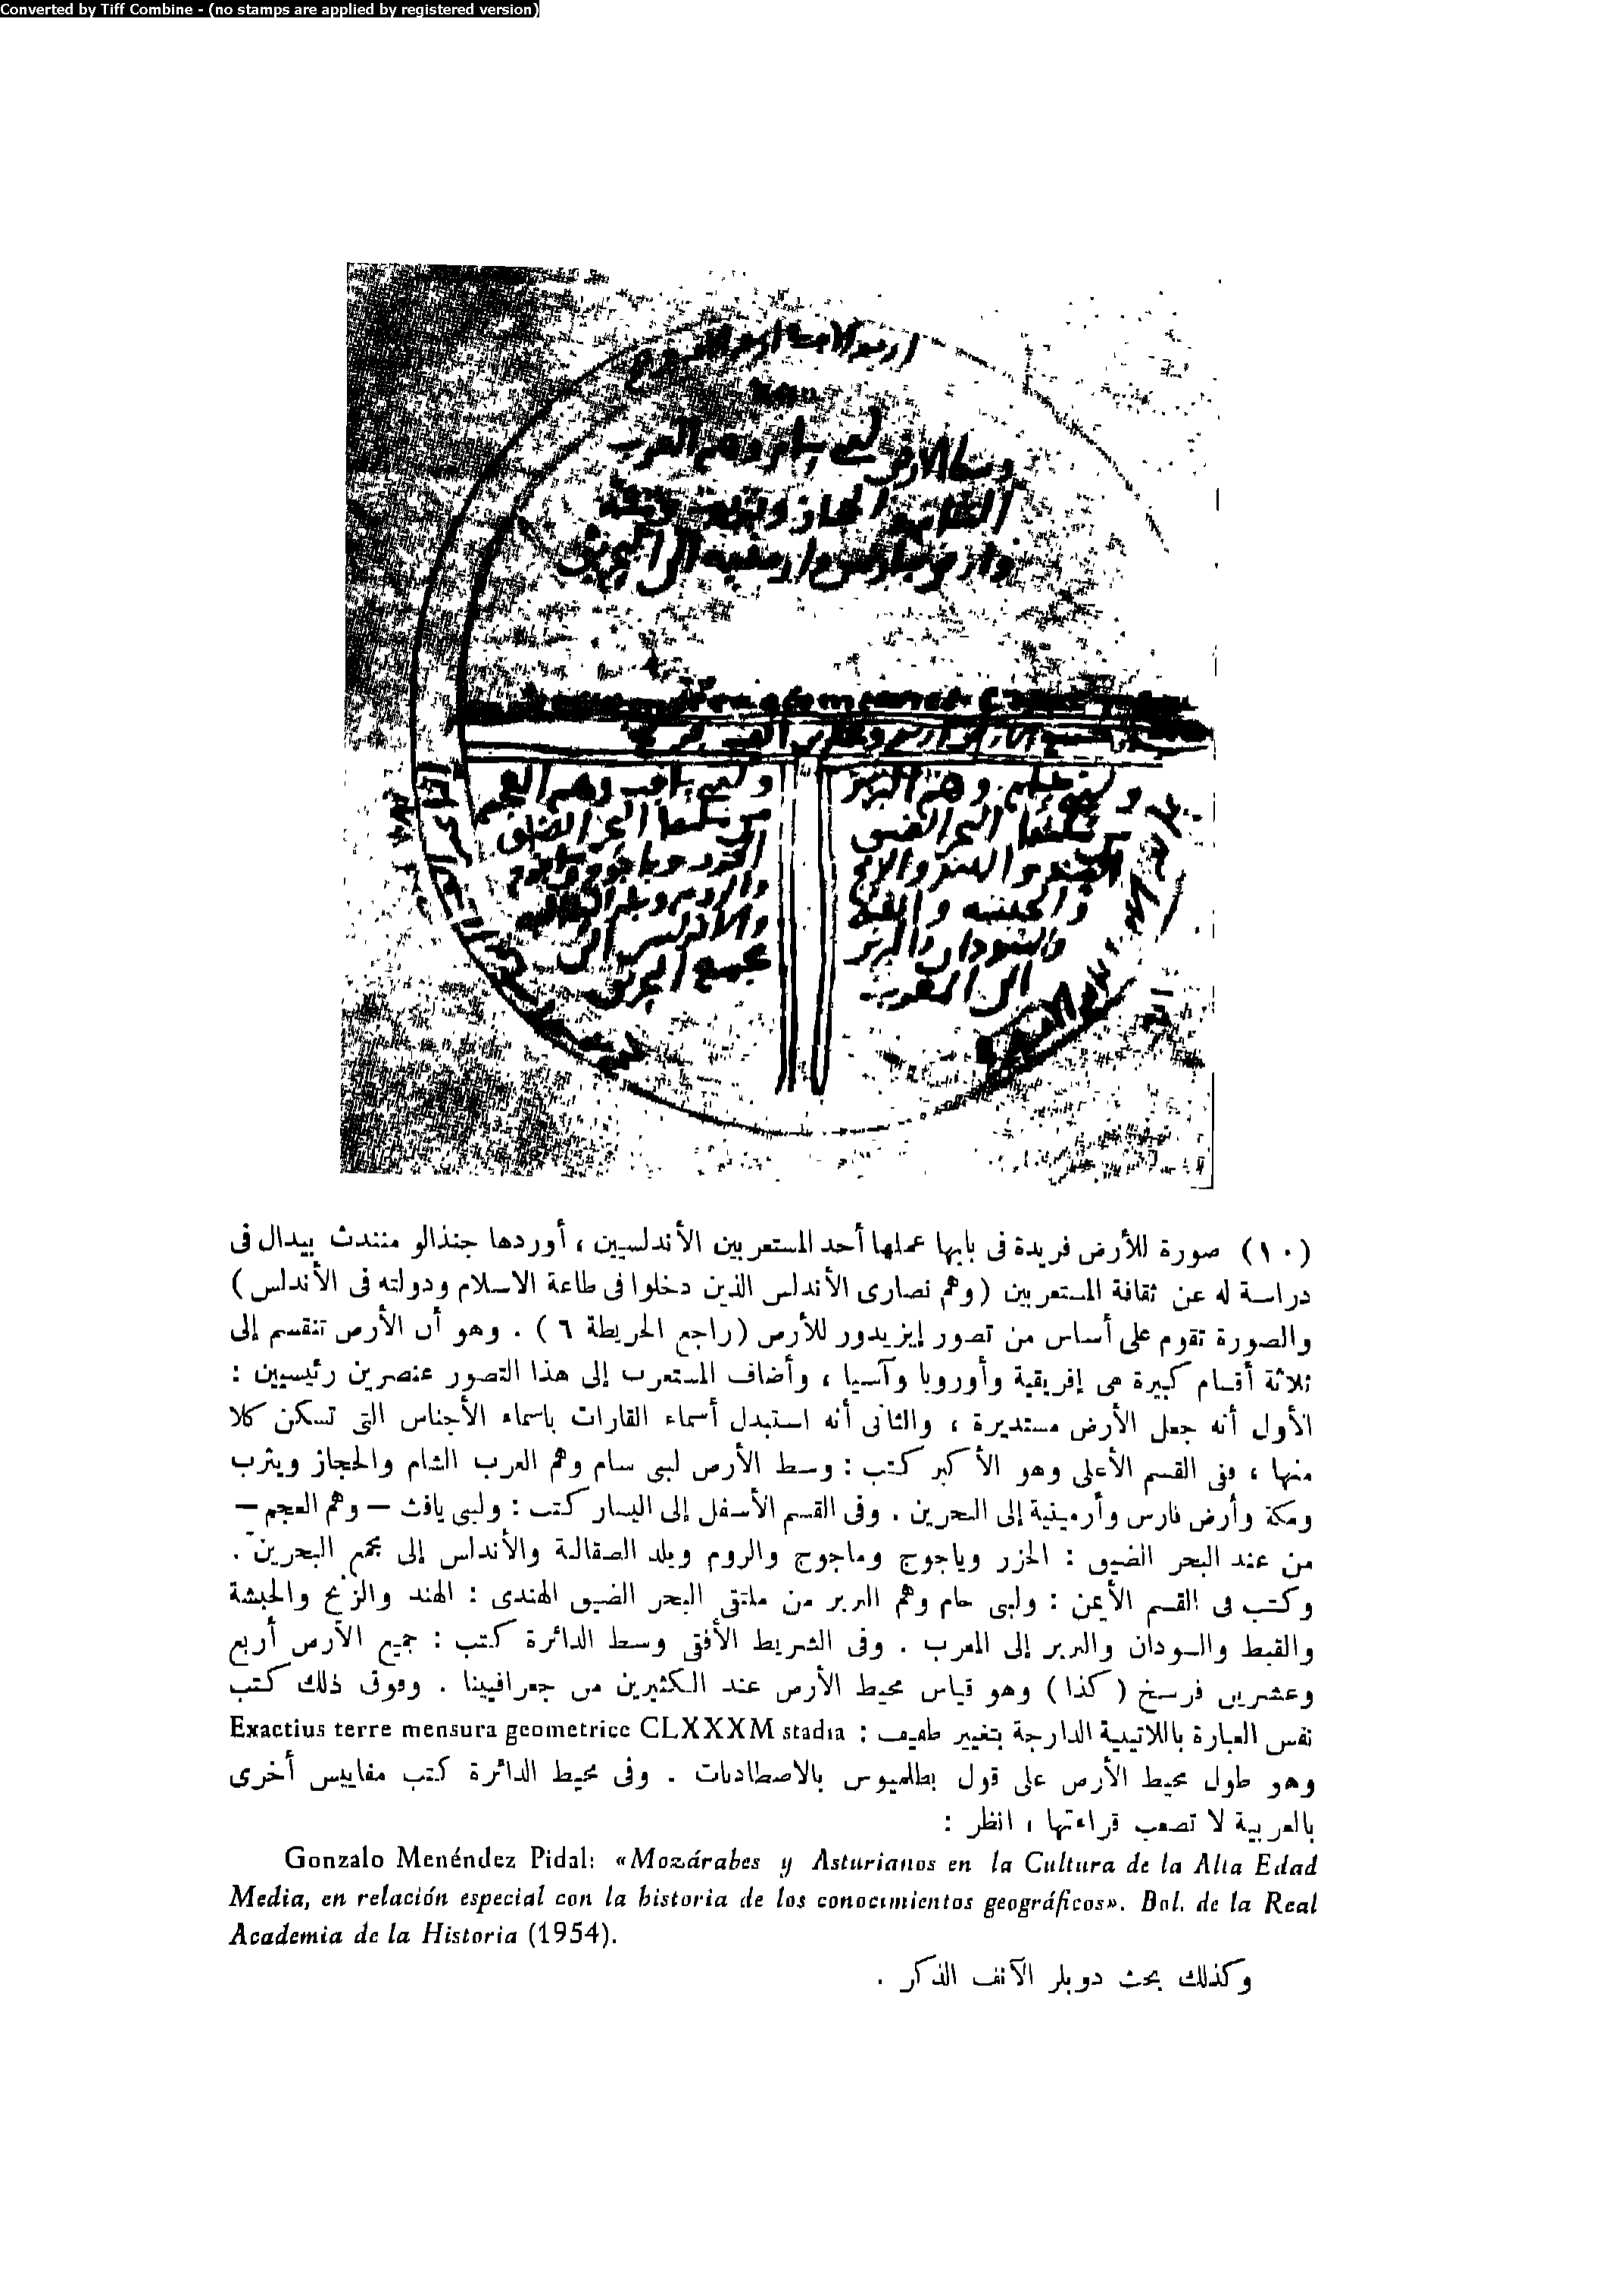 Converted by Tiff Combine - (no stamps are applied by registered version)
وسط الأرض لبني سام وهم العرب
الشام والحجاز ويثرب ومكة
وارض فارس وارمينية الى البحرين
ولبني يافث وهم العجم
ولبني حام وهم البربر
والاندلس الى
مجمع البحرين
والسودان والبربر
الى المغرب
(١٠) صورة للأرض فريدة فى بابها عملها أحد المستعربين الأندلسيين ، أوردها جنذالو منندث بيدال فى
دراسة له عن ثقافة المستعربين (وهم نصارى الأندلس الذين دخلوا فى طاعة الاسلام ودولته فى الأندلس)
والصورة تقوم على أساس من تصور إيزيدور للأرض (راجع الخريطة ٦) . وهو أن الأرض تنقسم إلى
ثلاثة أقسام كبيرة هى إفريقية وأوروبا وآسيا ، وأضاف المستعرب إلى هذا التصور عنصرين رئيسيين :
الأول أنه جعل الأرض مستديرة ، والثانى أنه استبدل أسماء القارات باسماء الأجناس التى تسكن كلا
منها ، ففى القسم الأعلى وهو الأكبر كتب : وسط الأرض لبنى سام وهم العرب الشام والحجاز ويثرب
ومكة وأرض فارس وأرمينية إلى البحرين . وفى القسم الأسفل إلى اليسار كتب : ولبنى يافث – وهم العجم –
من عند البحر الضيق : الخزر وياجوج وماجوج والروم وبلد الصقالبة والأندلس إلى مجمع البحرين .
وكتب فى القسم الأيمن : ولبنى حام وهم البربر من ملتقى البحر الضيق الهندى : الهند والزنج والحبشة
والقبط والسودان والبربر إلى المغرب . وفى الشريط الأفقى وسط الدائرة كتب : جميع الأرض أربع
وعشرين فرسخ (كذا) وهو قياس محيط الأرض عند الكثيرين من جغرافيينا . وفوق ذلك كتب
نفس العبارة باللاتينية الدارجة بتغيير طفيف : Exactius terre mensura geometrice CLXXXM stadia
وهو طول محيط الأرض على قول بطلميوس بالاصطاديات . وفى محيط الدائرة كتب مقاييس أخرى
بالعربية لا تصعب قراءتها ، انظر :
Gonzalo Menéndez Pidal: «Mozárabes y Asturianos en la Cultura de la Alta Edad
Media, en relación especial con la historia de los conocimientos geográficos». Bol. de la Real
Academia de la Historia (1954).
وكذلك بحث دوبلر الآنف الذكر .